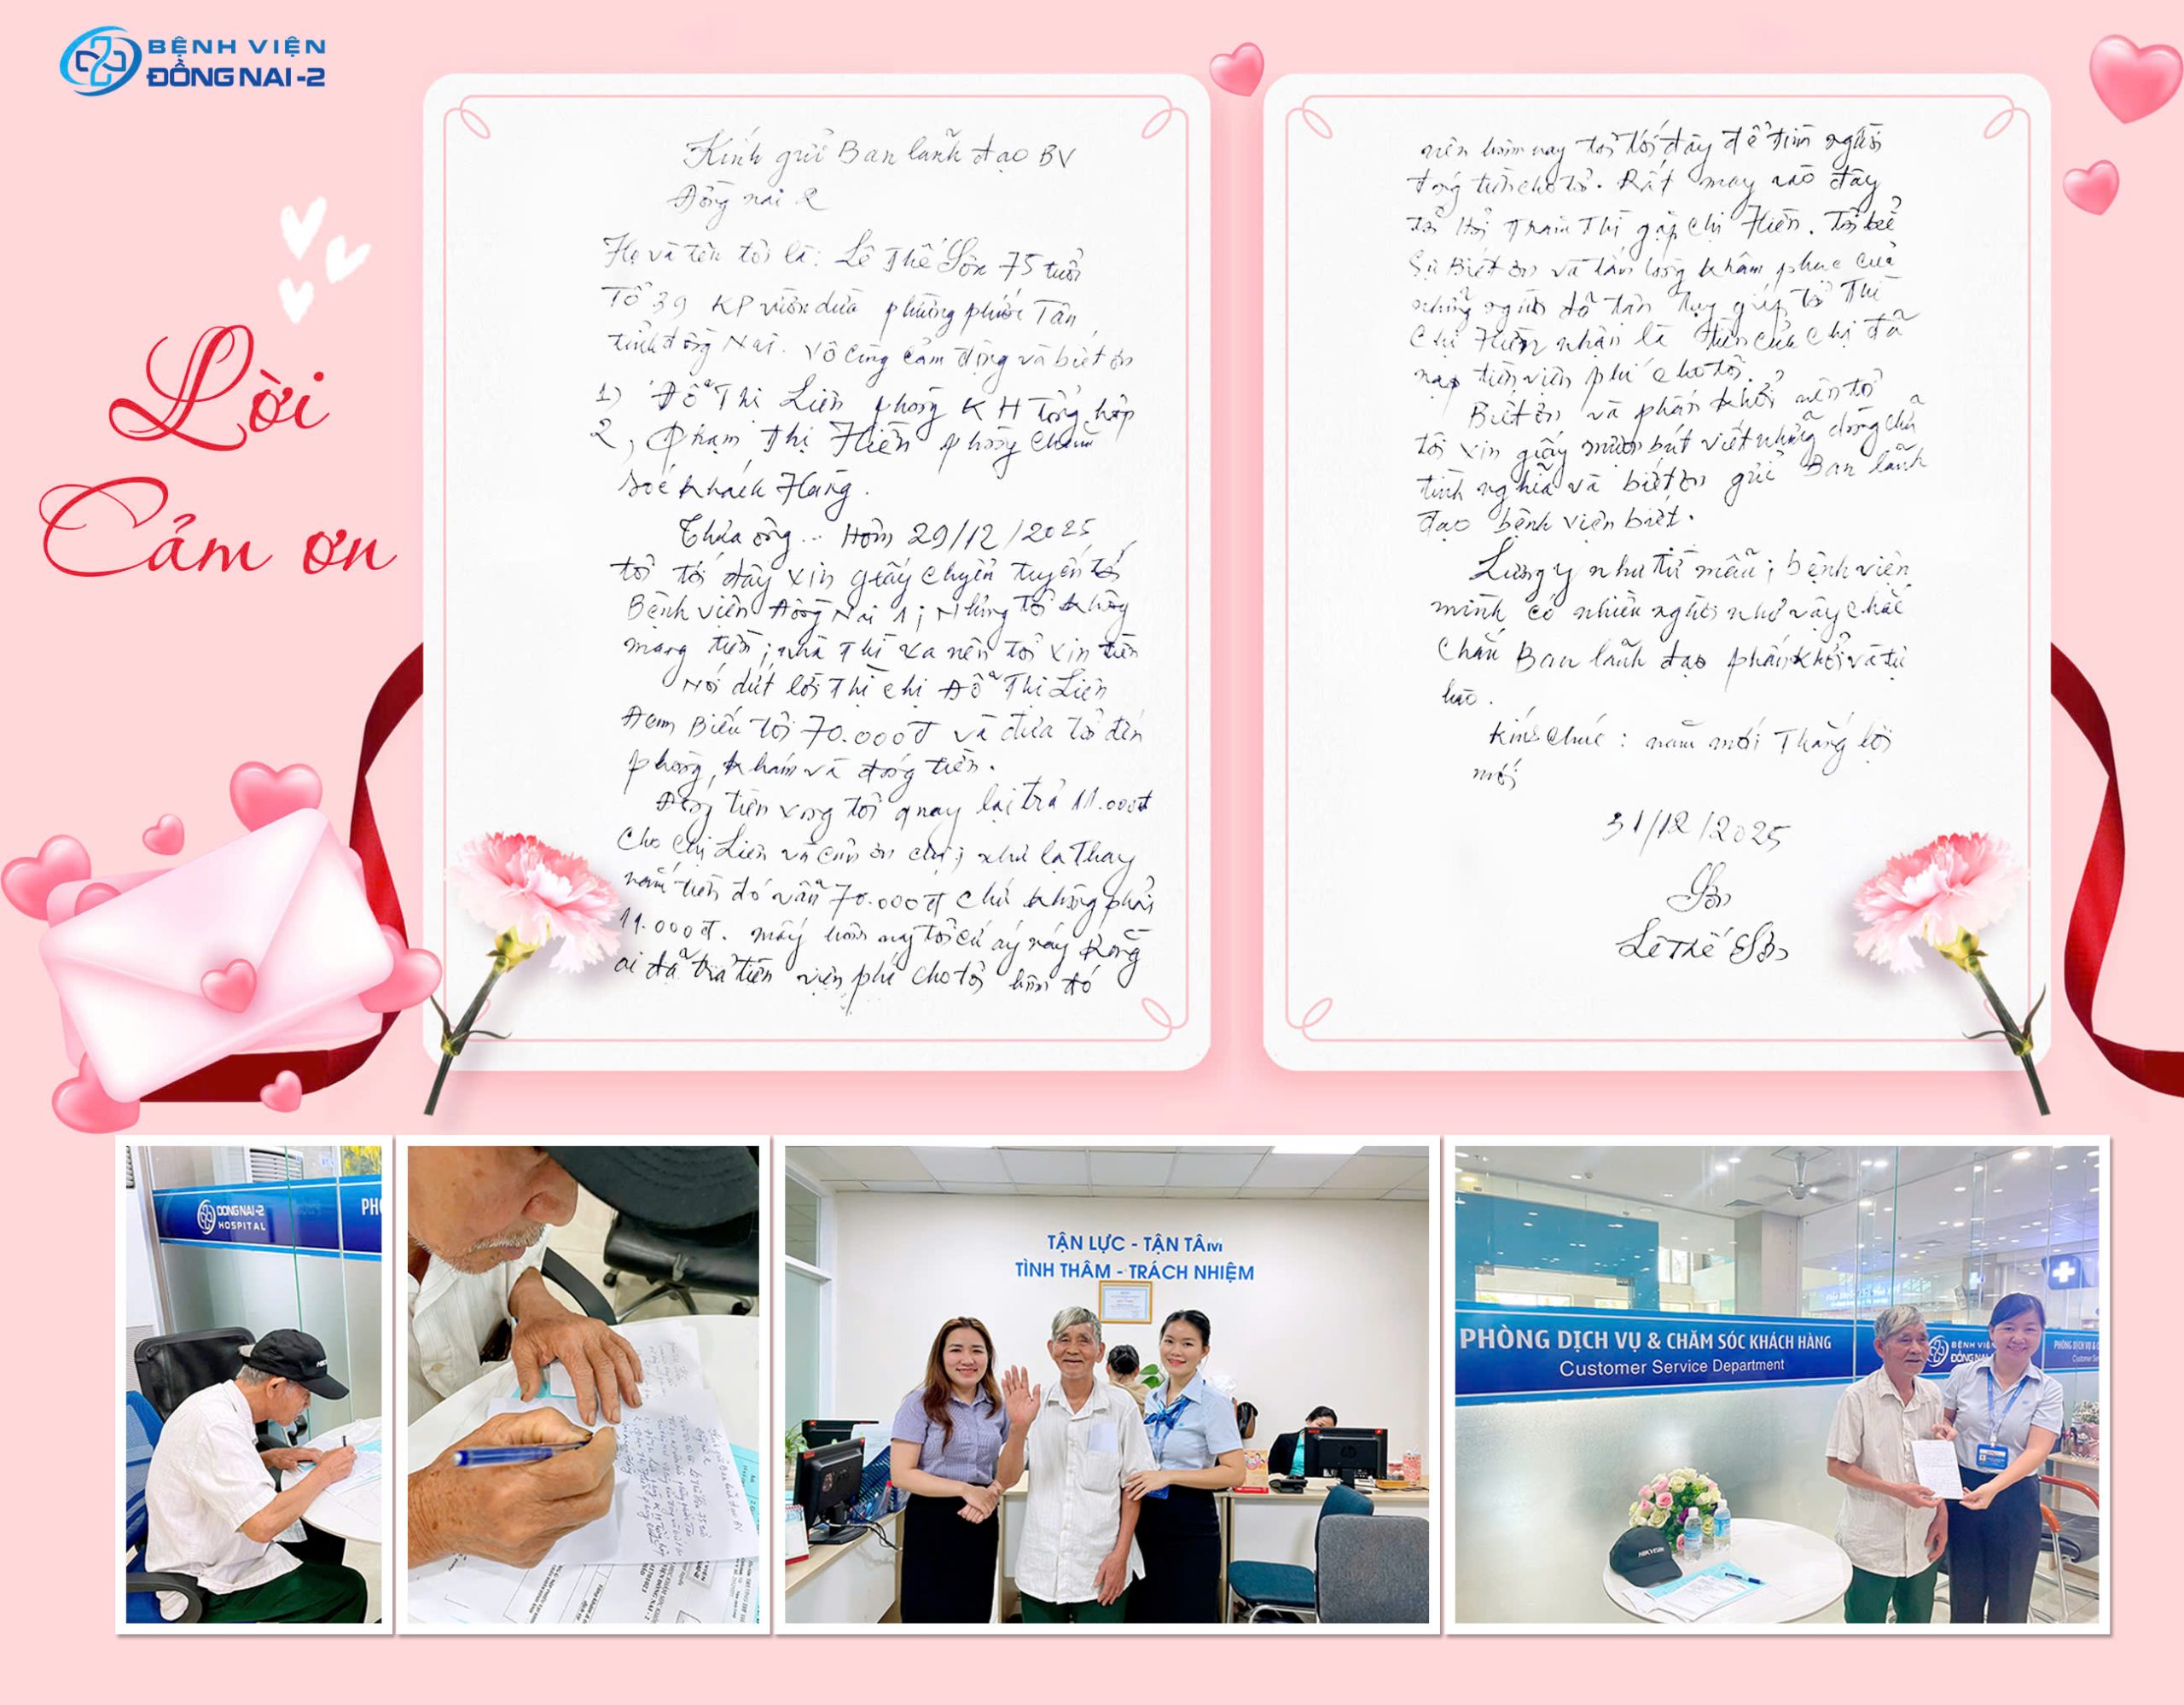 BỆNH VIỆN
ĐỒNG NAI -2
Lời
Cảm ơn
Kính gửi Ban lãnh đạo BV
Đồng nai 2
Họ và tên tôi là: Lê Thế Sơn 75 tuổi
Tổ 39 KP vườn dừa phường phước Tân
tỉnh đồng Nai. Vô cùng cảm động và biết ơn
1) Đỗ Thị Liên phòng KH Tổng hợp
2, Phạm Thị Hiền phòng chăm
sóc khách Hàng.
Thưa ông... Hôm 29/12/2025
tôi tới đây xin giấy chuyển tuyến tới
Bệnh viện Đồng Nai 1; Nhưng tôi không
mang tiền; nhà Thì xa nên tôi xin tiền
Nói dứt lời Thì chị Đỗ Thị Liên
Đem Biếu tôi 70.000đ và đưa tôi đến
phòng, khám và đóng tiền.
Đóng tiền xong tôi quay lại trả 11.000đ
cho chị Liên và cảm ơn chị; như lạ Thay
nắm tiền đó vẫn 70.000đ chứ không phải
11.000đ. mấy hôm nay tôi cứ áy náy không
ai đã trả tiền viện phí cho tôi hôm đó
nên hôm nay tôi tới đây để tìm người
đóng tiền cho tôi. Rất may vào đây
tôi Hỏi Thăm Thì gặp chị Hiền. Tôi kể
Sự Biết ơn và tấm lòng khâm phục của
những người đã tận tụy giúp tôi Thì
chị Hiền nhận là tiền của chị đã
nạp tiền viện phí cho tôi.
Biết ơn và phấn khởi nên tôi
tôi xin giấy mượn bút viết những dòng chữ
tình nghĩa và biết ơn gửi Ban lãnh
đạo bệnh viện biết.
Lương y như từ mẫu; bệnh viện
mình có nhiều người như vậy chắc
chắn Ban lãnh đạo phấn khởi và tự
hào.
kính chúc: năm mới Thắng lợi
mới
31/12/2025
Sơn
Lê Thế Sơn
DONG NAI-2
HOSPITAL
TẬN LỰC - TẬN TÂM
TÌNH THÂM - TRÁCH NHIỆM
PHÒNG DỊCH VỤ & CHĂM SÓC KHÁCH HÀNG
Customer Service Department
HIKVISION